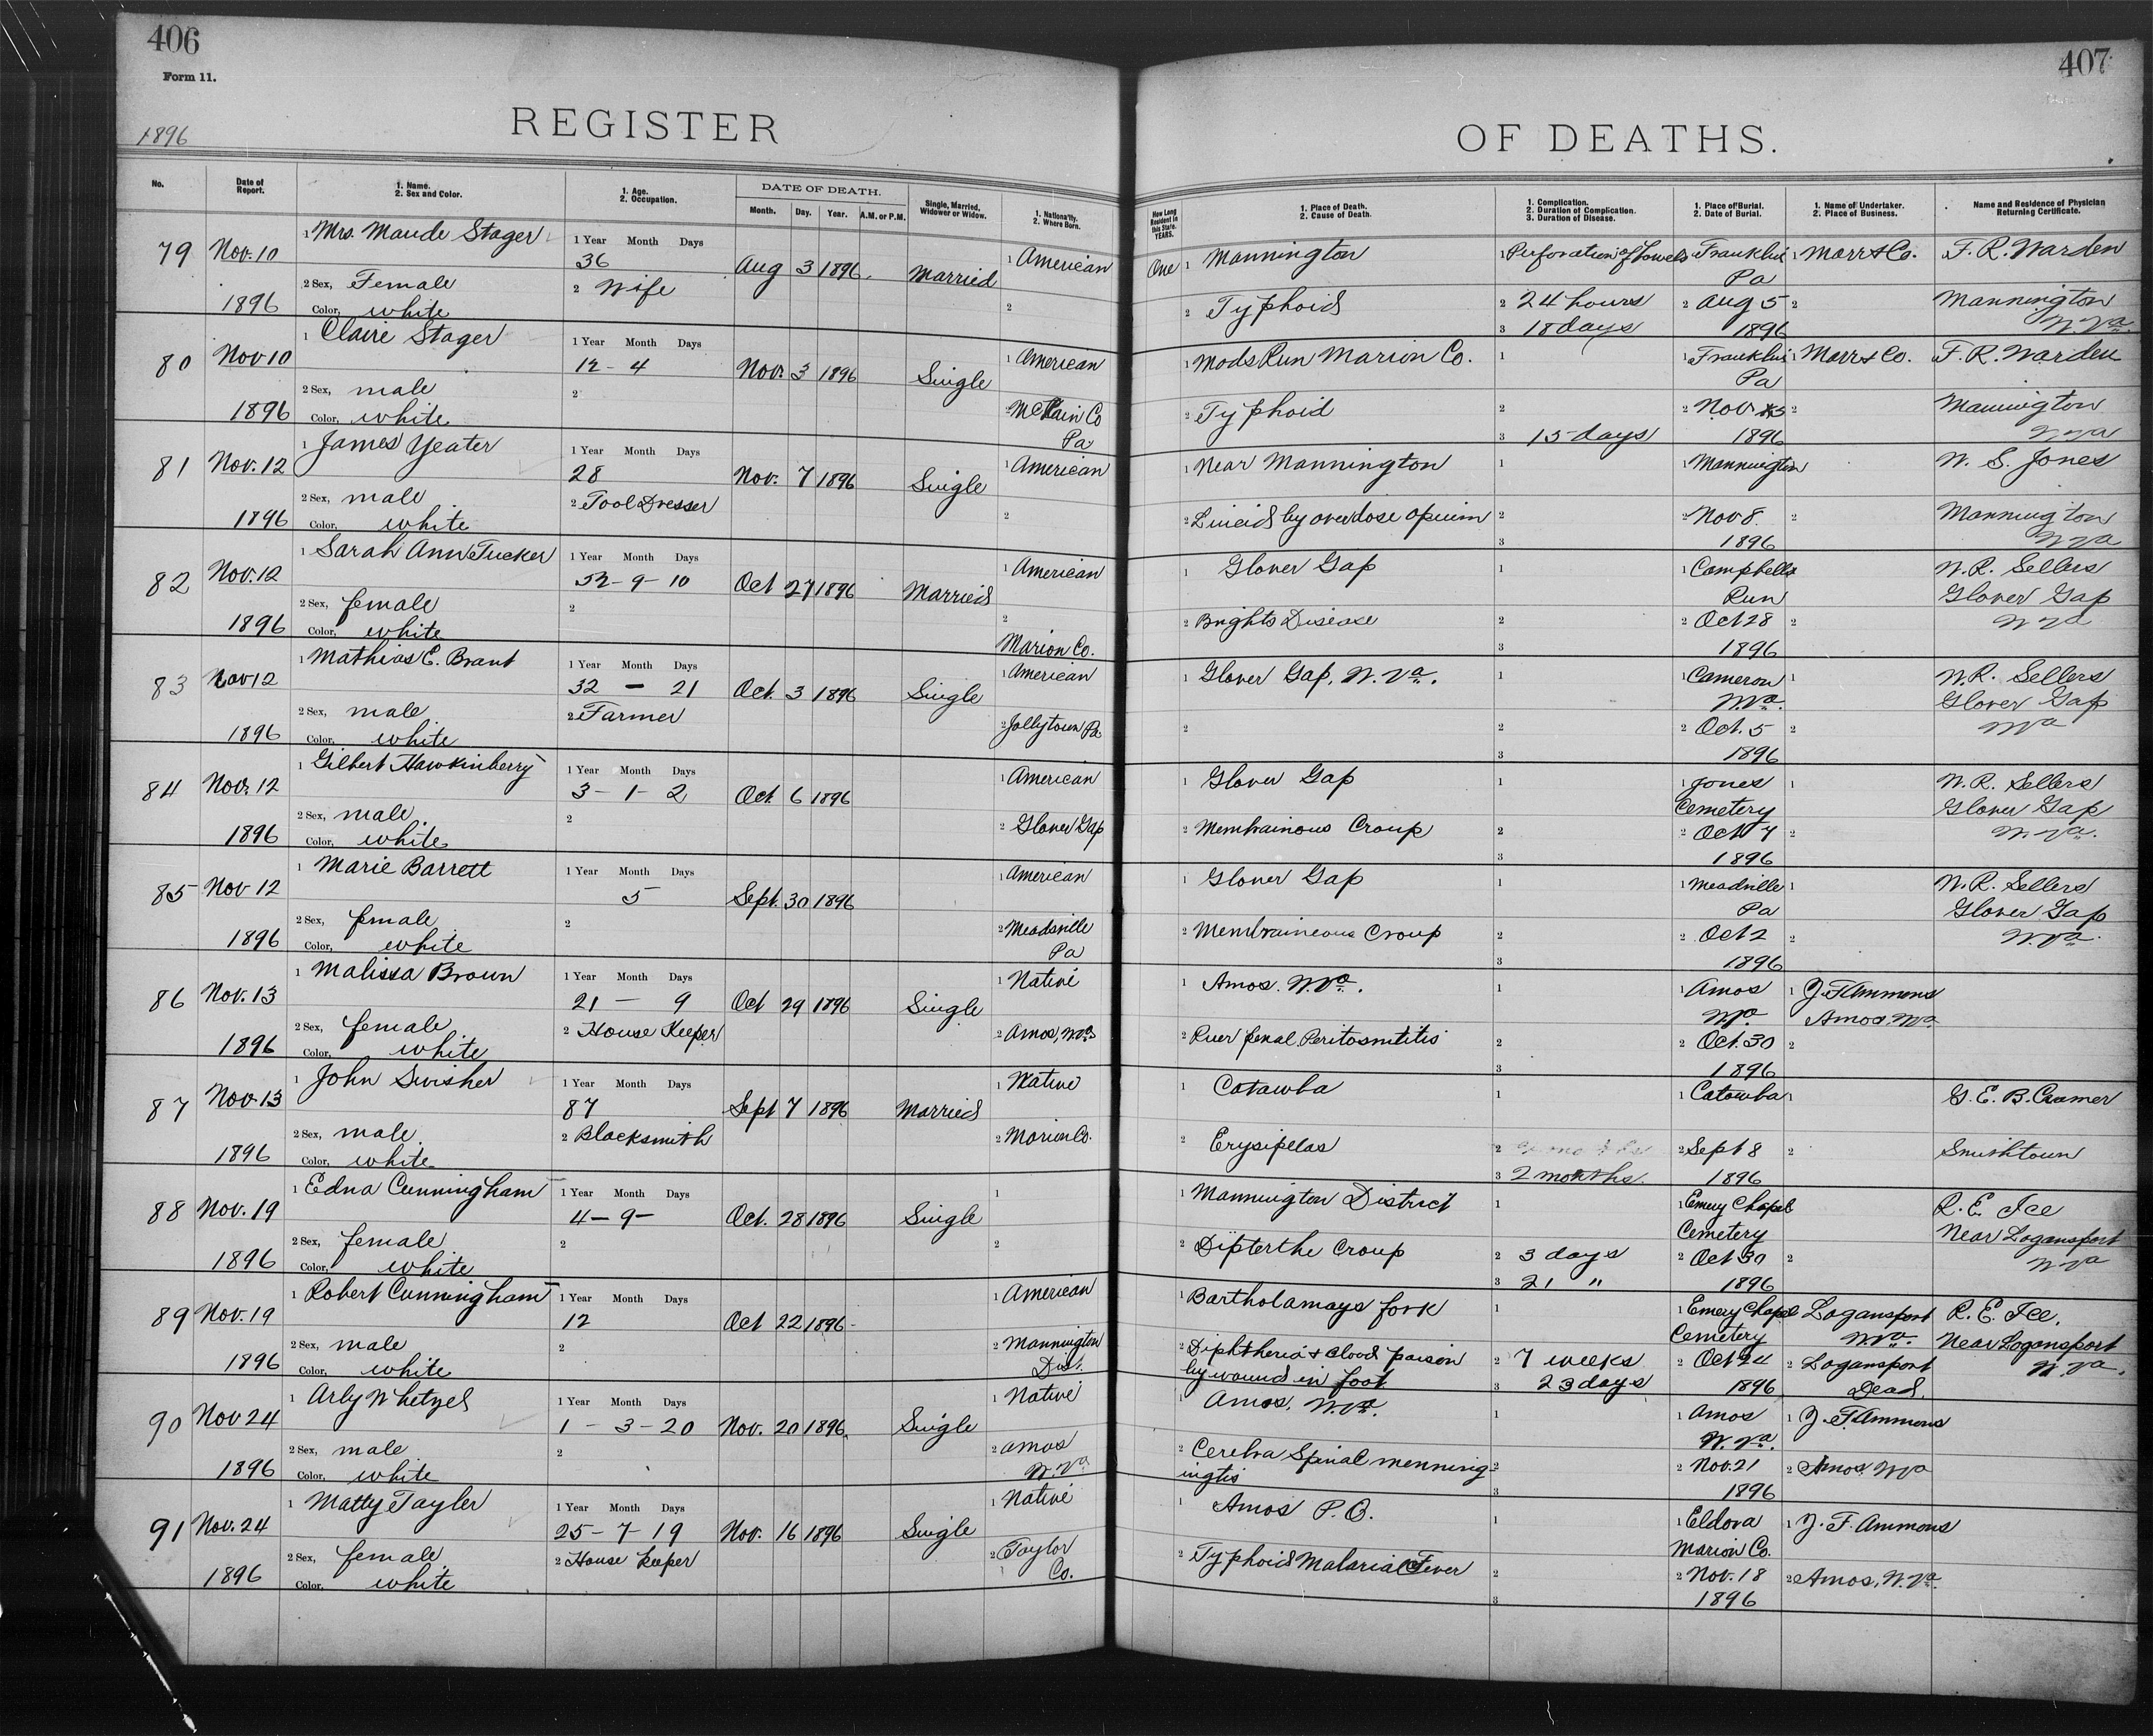 406
Form 11.
1896
REGISTER
OF DEATHS.
407
No.
Date of Report.
1. Name.
2. Sex and Color.
1. Age.
2. Occupation.
DATE OF DEATH.
Month. Day. Year. A.M. or P.M.
Single, Married, Widower or Widow.
1. Nationality.
2. Where Born.
How Long Resident in this State. YEARS.
1. Place of Death.
2. Cause of Death.
1. Complication.
2. Duration of Complication.
3. Duration of Disease.
1. Place of Burial.
2. Date of Burial.
1. Name of Undertaker.
2. Place of Business.
Name and Residence of Physician Returning Certificate.
79 Nov. 10 1 Mrs. Maude Stager 1 Year Month Days
36 Aug 3 1896. Married 1 American One 1 Mannington 1 Perforation of bowels 1 Franklin Pa 1 Marr & Co. F. R. Warden
1896 2 Sex, Female 2 Wife 2 2 Typhoid 2 24 hours 2 Aug 5 2 Mannington
Color, white 3 18 days 1896 W. Va.
80 Nov 10 1 Claire Stager 1 Year Month Days
12 - 4 Nov. 3 1896 Single 1 American 1 Mods Run Marion Co. 1 1 Franklin Pa 1 Marr & Co. F. R. Warden
1896 2 Sex, male 2 2 McKain Co Pa 2 Typhoid 2 2 Nov. 5 2 Mannington
Color, white 3 15 days 1896 W Va
81 Nov. 12 1 James Yeater 1 Year Month Days
28 Nov. 7 1896 Single 1 American 1 Near Mannington 1 1 Mannington W. S. Jones
1896 2 Sex, male 2 Tool Dresser 2 2 Suicid by overdose opuim 2 2 Nov 8. 2 Mannington
Color, white 3 1896 W Va
82 Nov. 12 1 Sarah Ann Tucker 1 Year Month Days
52 - 9 - 10 Oct 27 1896 Married 1 American 1 Glover Gap 1 1 Campbells Run W. R. Sellers
1896 2 Sex, female 2 2 Marion Co. 2 Brights Disease 2 2 Oct 28 2 Glover Gap
Color, white 3 1896 W Va
83 Nov 12 1 Mathias E. Brant 1 Year Month Days
32 - 21 Oct. 3 1896 Single 1 American 1 Glover Gap, W. Va. 1 1 Cameron W.Va. 1 W. R. Sellers
1896 2 Sex, male 2 Farmer 2 Jollytown Pa 2 2 2 Oct. 5 2 Glover Gap
Color, white 3 1896 W Va
84 Nov. 12 1 Gilbert Hawkinberry 1 Year Month Days
3 - 1 - 2 Oct. 6 1896 1 American 1 Glover Gap 1 1 Jones Cemetery 1 W. R. Sellers
1896 2 Sex, male 2 2 Glover Gap 2 Membrainous Croup 2 2 Oct 7 2 Glover Gap
Color, white 3 1896 W. Va.
85 Nov 12 1 Marie Barrett 1 Year Month Days
5 Sept. 30 1896 1 American 1 Glover Gap 1 1 Meadville Pa 1 W. R. Sellers
1896 2 Sex, female 2 2 Meadsville Pa 2 Membraineous Croup 2 2 Oct 2 2 Glover Gap
Color, white 3 1896 W. Va.
86 Nov. 13 1 Malissa Brown 1 Year Month Days
21 - 9 Oct 29 1896 Single 1 Native 1 Amos. W. Va. 1 1 Amos W Va 1 J. F. Ammons
1896 2 Sex, female 2 House Keeper 2 Amos, W. Va 2 Puer penal Peritosnititis 2 2 Oct. 30 2 Amos, W. Va.
Color, white 3 1896
87 Nov 13 1 John Swisher 1 Year Month Days
87 Sept 7 1896 Married 1 Native 1 Catawba 1 1 Catawba 1 G. E. B. Cramer
1896 2 Sex, male 2 Blacksmith 2 Marion Co. 2 Erysipelas 2 2 Sept 8 2 Smithtown
Color, white 3 2 months. 1896
88 Nov. 19 1 Edna Cunningham 1 Year Month Days
4 - 9 - Oct. 28 1896 Single 1 1 Mannington District 1 1 Emery Chapel Cemetery R. E. Ice
1896 2 Sex, female 2 2 2 Dipterthe Croup 2 3 days 2 Oct 30 2 Near Logansport
Color, white 3 21 " 1896 W Va
89 Nov. 19 1 Robert Cunningham 1 Year Month Days
12 Oct 22 1896 1 American 1 Bartholamays fork 1 1 Emery Chapel Cemetery Logansport W. Va. R. E. Ice.
1896 2 Sex, male 2 2 Mannington Dist. 2 Diphtheria & blood poison 2 7 weeks 2 Oct 24 2 Logansport Near Logansport
Color, white by wound in foot 3 23 days 1896 Dead. W. Va.
90 Nov 24 1 Arly Whetzel 1 Year Month Days
1 - 3 - 20 Nov. 20 1896. Single 1 Native 1 Amos, W. Va. 1 1 Amos W. Va. 1 J. F. Ammons
1896 2 Sex, male 2 2 Amos W. Va 2 Cerebra Spinal menning- 2 2 Nov. 21 2 Amos W Va
Color, white ingtis 3 1896
91 Nov. 24 1 Matty Tayler 1 Year Month Days
25 - 7 - 19 Nov. 16 1896 Single 1 Native 1 Amos P. O. 1 1 Eldora Marion Co. 1 J. F. Ammons
1896 2 Sex, female 2 House keeper 2 Taylor Co. 2 Typhoid Malarial Fever 2 2 Nov. 18 2 Amos, W. Va.
Color, white 3 1896